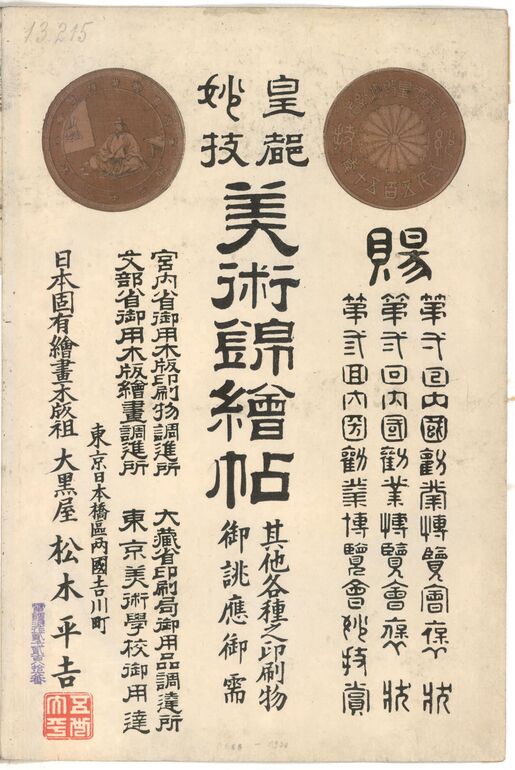 13.215
賜
第弍回内國勸業博覽會褒状
第弍回内國勸業博覽會褒状
第弍回内國勸業博覽會妙技賞
皇都
妙技
美術錦繪帖
其他各種之印刷物
御誂應御需
宮内省御用木版印刷物調進所
文部省御用木版繪畫調進所
大藏省印刷局御用品調達所
東京美術學校御用達
東京日本橋區两國吉川町
日本固有繪畫木版祖 大黒屋 松木平吉